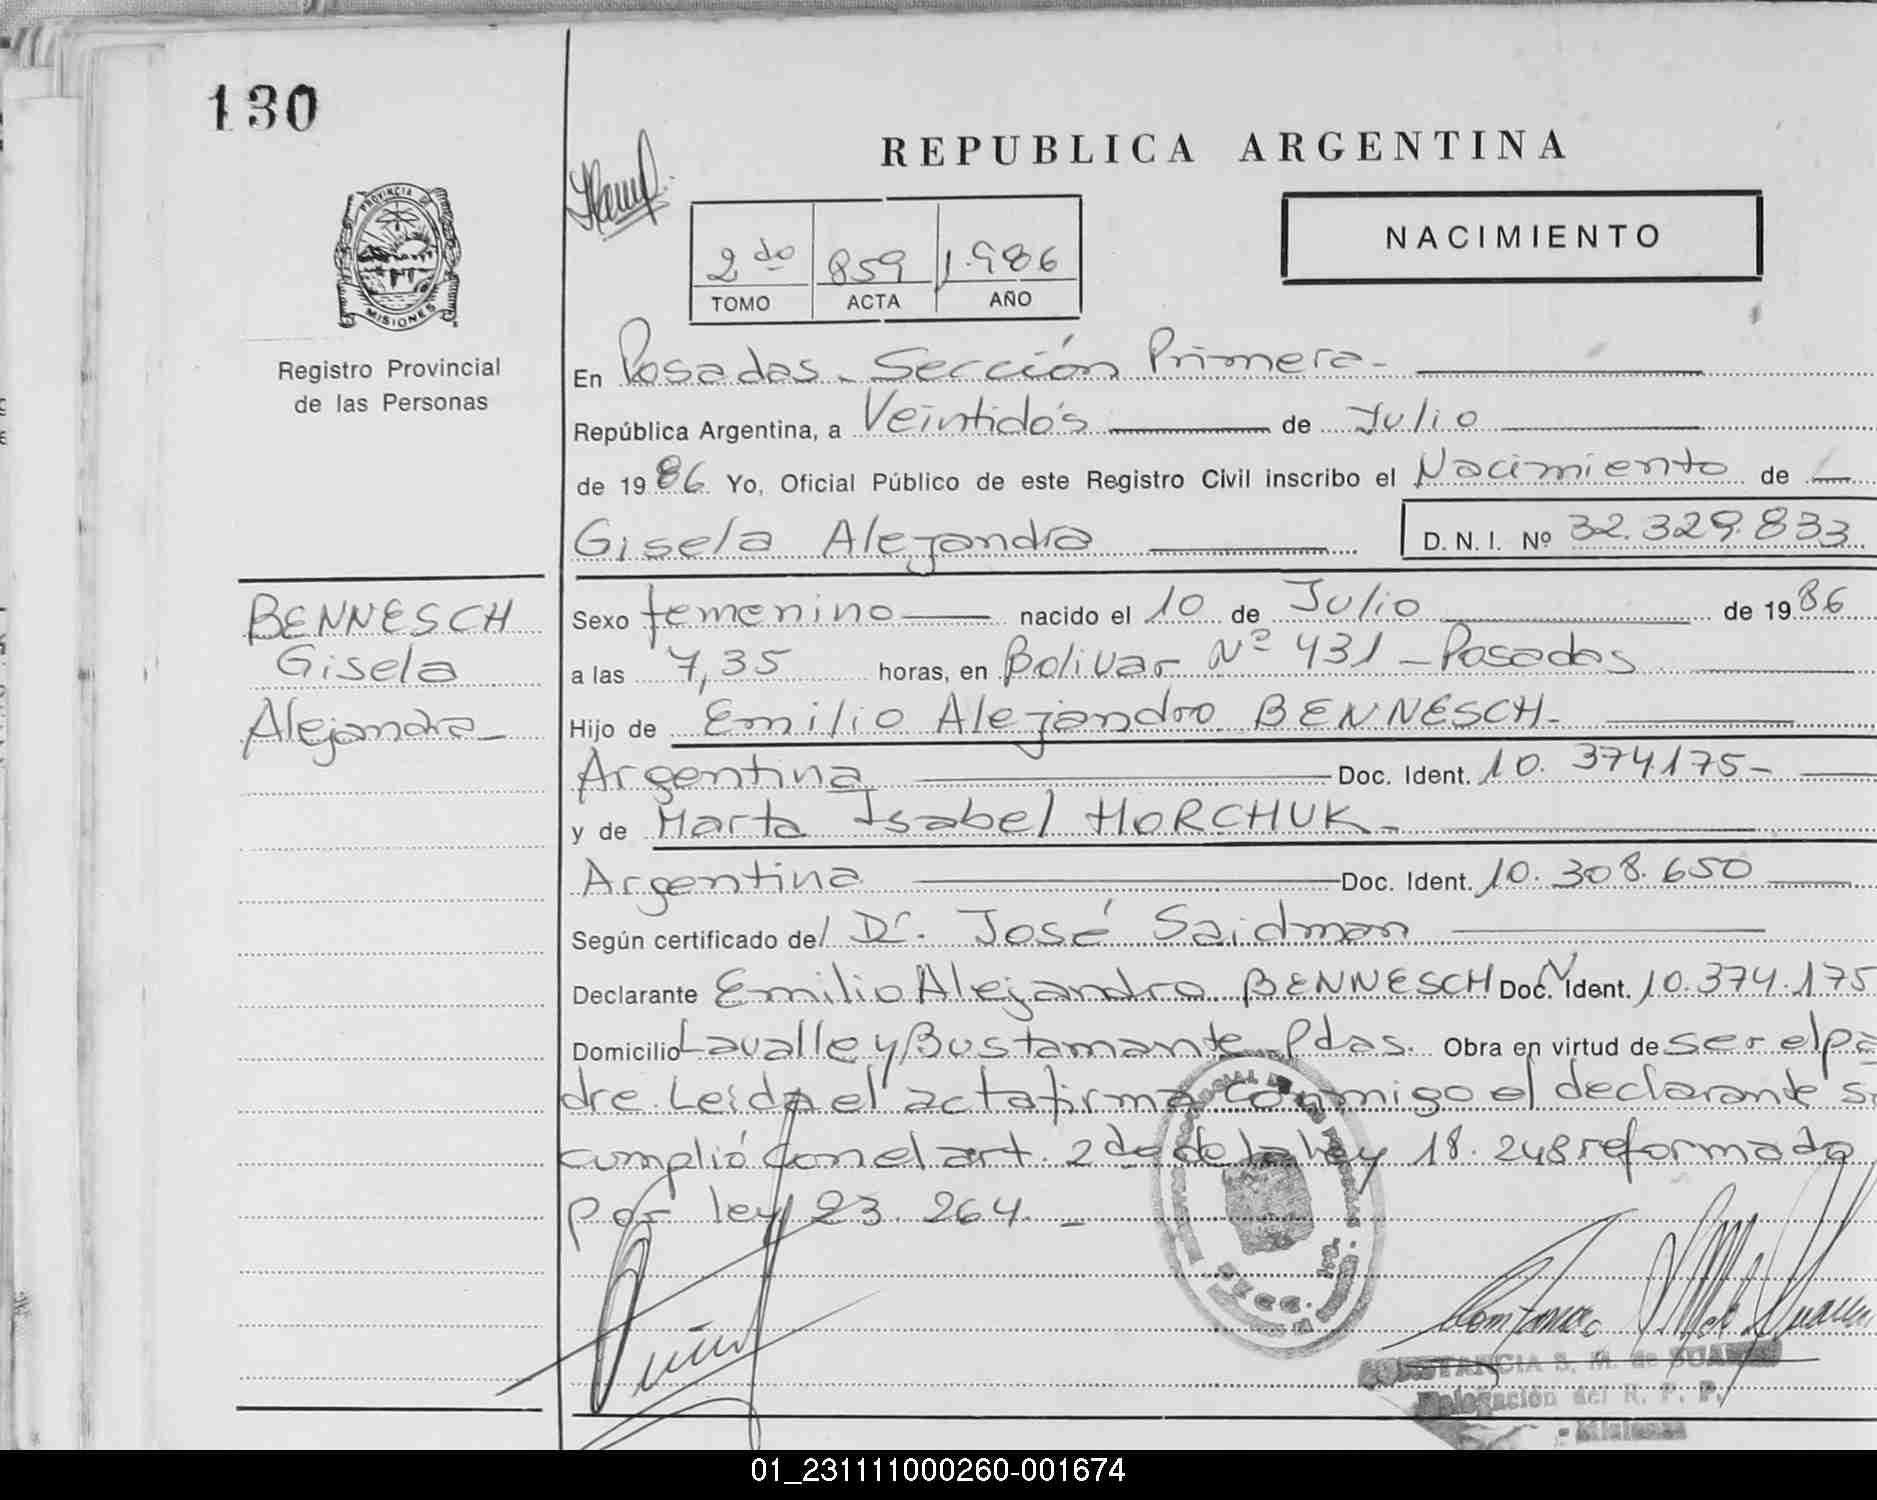 130
REPUBLICA ARGENTINA
NACIMIENTO
PROVINCIA DE
MISIONES
Registro Provincial
de las Personas
2do 859 1.986
TOMO ACTA AÑO
En Posadas - Sección Primera-
República Argentina, a Veintidós de Julio
de 1986 Yo, Oficial Público de este Registro Civil inscribo el Nacimiento de
Gisela Alejandra D.N.I. Nº 32.329.833
BENNESCH
Gisela
Alejandra-
Sexo femenino nacido el 10 de Julio de 1986
a las 7,35 horas, en Bolivar Nº 431 - Posadas
Hijo de Emilio Alejandro BENNESCH-
Argentina Doc. Ident. 10.374175-
y de Marta Isabel HORCHUK-
Argentina Doc. Ident. 10.308.650
Según certificado del Dr. José Saidman
Declarante Emilio Alejandro BENNESCH Doc. Ident. 10.374.175
Domicilio Lavalle y Bustamante Pdas. Obra en virtud de ser el pa
dre. Leída el acta firma conmigo el declarante s
cumplió con el art. 2do de la ley 18.248 reformado
por ley 23.264. -
CONSTANCIA S. M. de
Delegación del R. P. P.
- Misiones
01_231111000260-001674